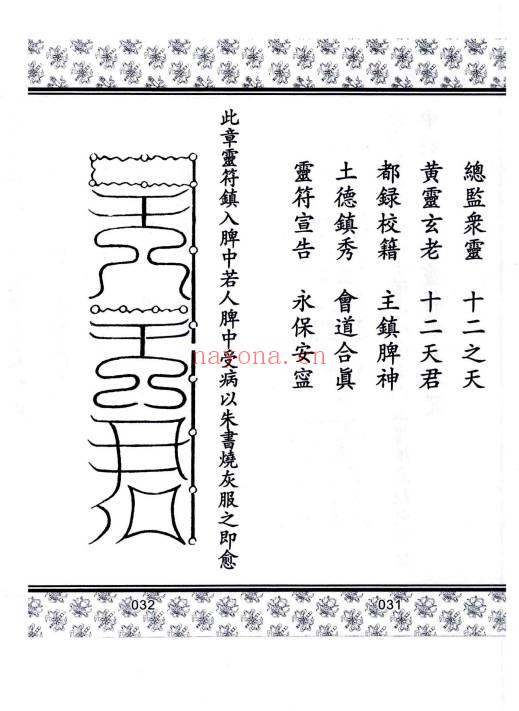 總監衆靈 十二之天
黄靈玄老 十二天君
都録校籍 主鎮脾神
土德鎮秀 會道合眞
靈符宣告 永保安寍
此章靈符鎮入脾中若人脾中受病以朱書燒灰服之即愈
nayona.cn
032
031